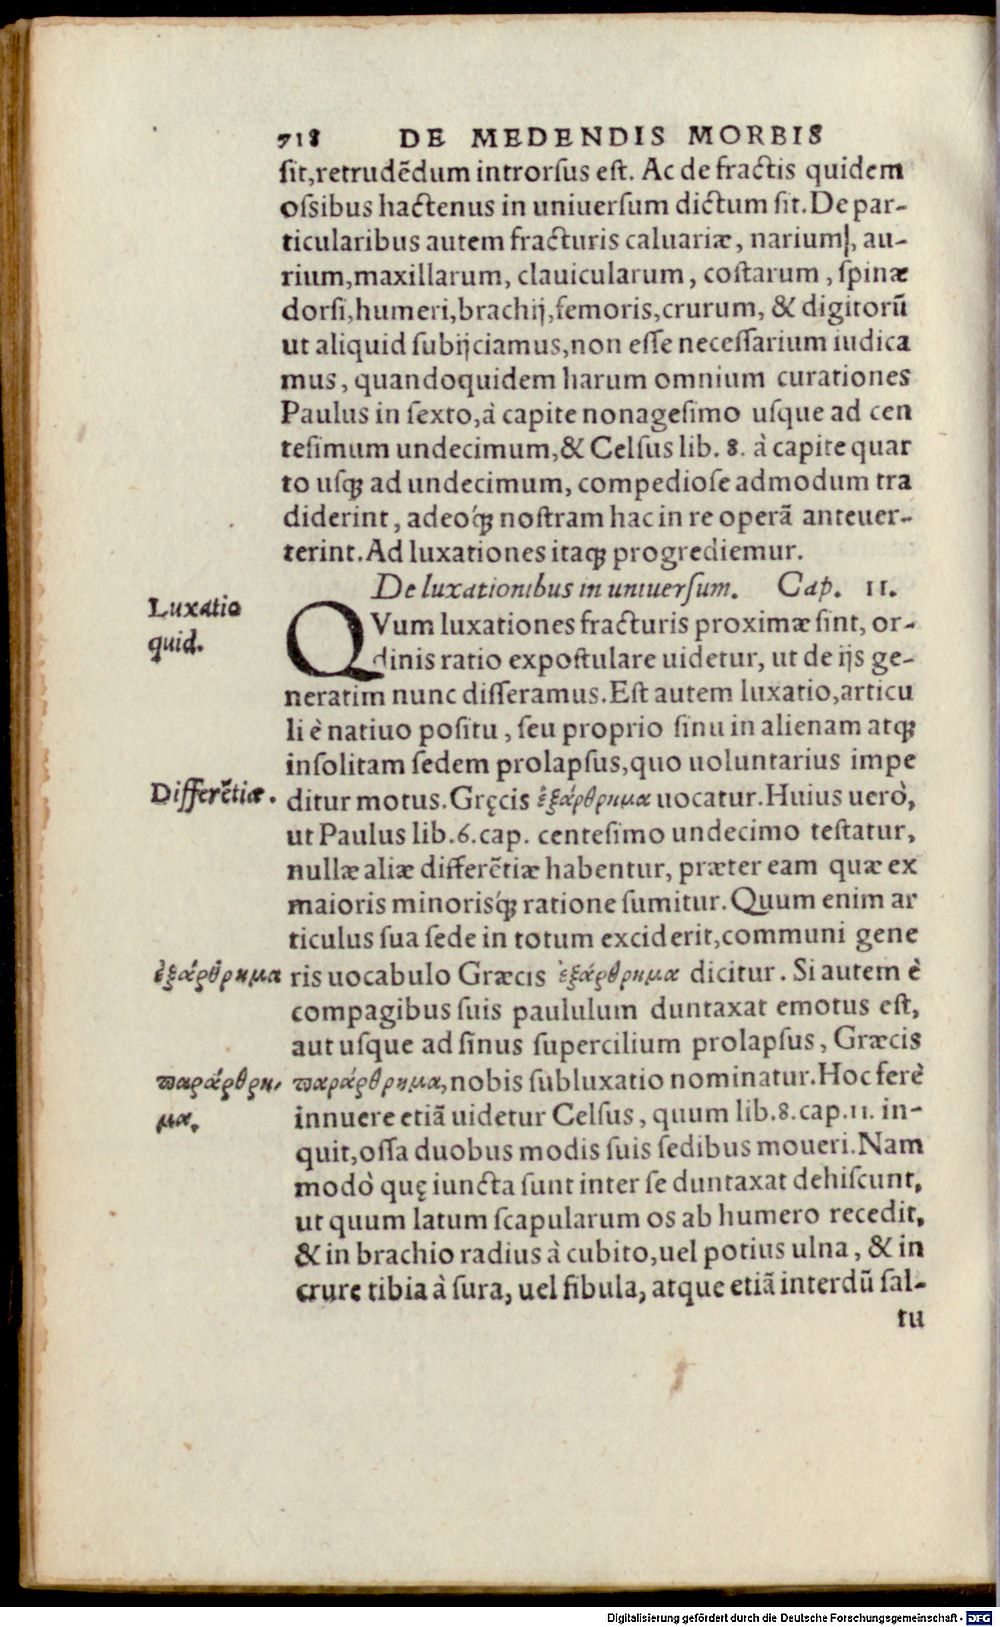 718 DE MEDENDIS MORBIS
ſit,retrudẽdum introrſus eſt. Ac de fractis quidem
oſsibus hactenus in uniuerſum dictum ſit.De par-
ticularibus autem fracturis caluariæ, narium|, au-
rium,maxillarum, clauicularum, coſtarum, ſpinæ
dorſi,humeri,brachij,femoris,crurum, & digitorũ
ut aliquid ſubijciamus,non eſſe neceſſarium iudica
mus, quandoquidem harum omnium curationes
Paulus in ſexto,à capite nonageſimo uſque ad cen
teſimum undecimum,& Celſus lib. 8. à capite quar
to uſqꝫ ad undecimum, compedioſe admodum tra
diderint, adeoq́ꝫ noſtram hac in re operã anteuer-
terint.Ad luxationes itaqꝫ progrediemur.
De luxationibus in uniuerſum. Cap. 11.
Luxatio
quid.
QVum luxationes fracturis proximæ ſint, or-
dinis ratio expoſtulare uidetur, ut de ijs ge-
neratim nunc diſſeramus.Eſt autem luxatio,articu
li è natiuo poſitu, ſeu proprio ſinu in alienam atqꝫ
inſolitam ſedem prolapſus,quo uoluntarius impe
Differẽtiæ.
ditur motus.Gręcis ἐξάρθρημα uocatur.Huius uerò,
ut Paulus lib.6.cap. centeſimo undecimo teſtatur,
nullæ aliæ differẽtiæ habentur, præter eam quæ ex
maioris minorisq́ꝫ ratione ſumitur.Quum enim ar
ticulus ſua ſede in totum exciderit,communi gene
ἐξάρθρημα
ris uocabulo Græcis ἐξάρθρημα dicitur. Si autem è
compagibus ſuis paululum duntaxat emotus eſt,
aut uſque ad ſinus ſupercilium prolapſus, Græcis
ϖαράρθρη-
μα.
ϖαράρθρημα,nobis ſubluxatio nominatur.Hoc ferè
innuere etiã uidetur Celſus, quum lib.8.cap.11. in-
quit,oſſa duobus modis ſuis ſedibus moueri.Nam
modò quę iuncta ſunt inter ſe duntaxat dehiſcunt,
ut quum latum ſcapularum os ab humero recedit,
& in brachio radius à cubito,uel potius ulna, & in
crure tibia à ſura, uel fibula, atque etiã interdũ ſal-
tu
Digitalisierung gefördert durch die Deutsche Forschungsgemeinschaft - DFG